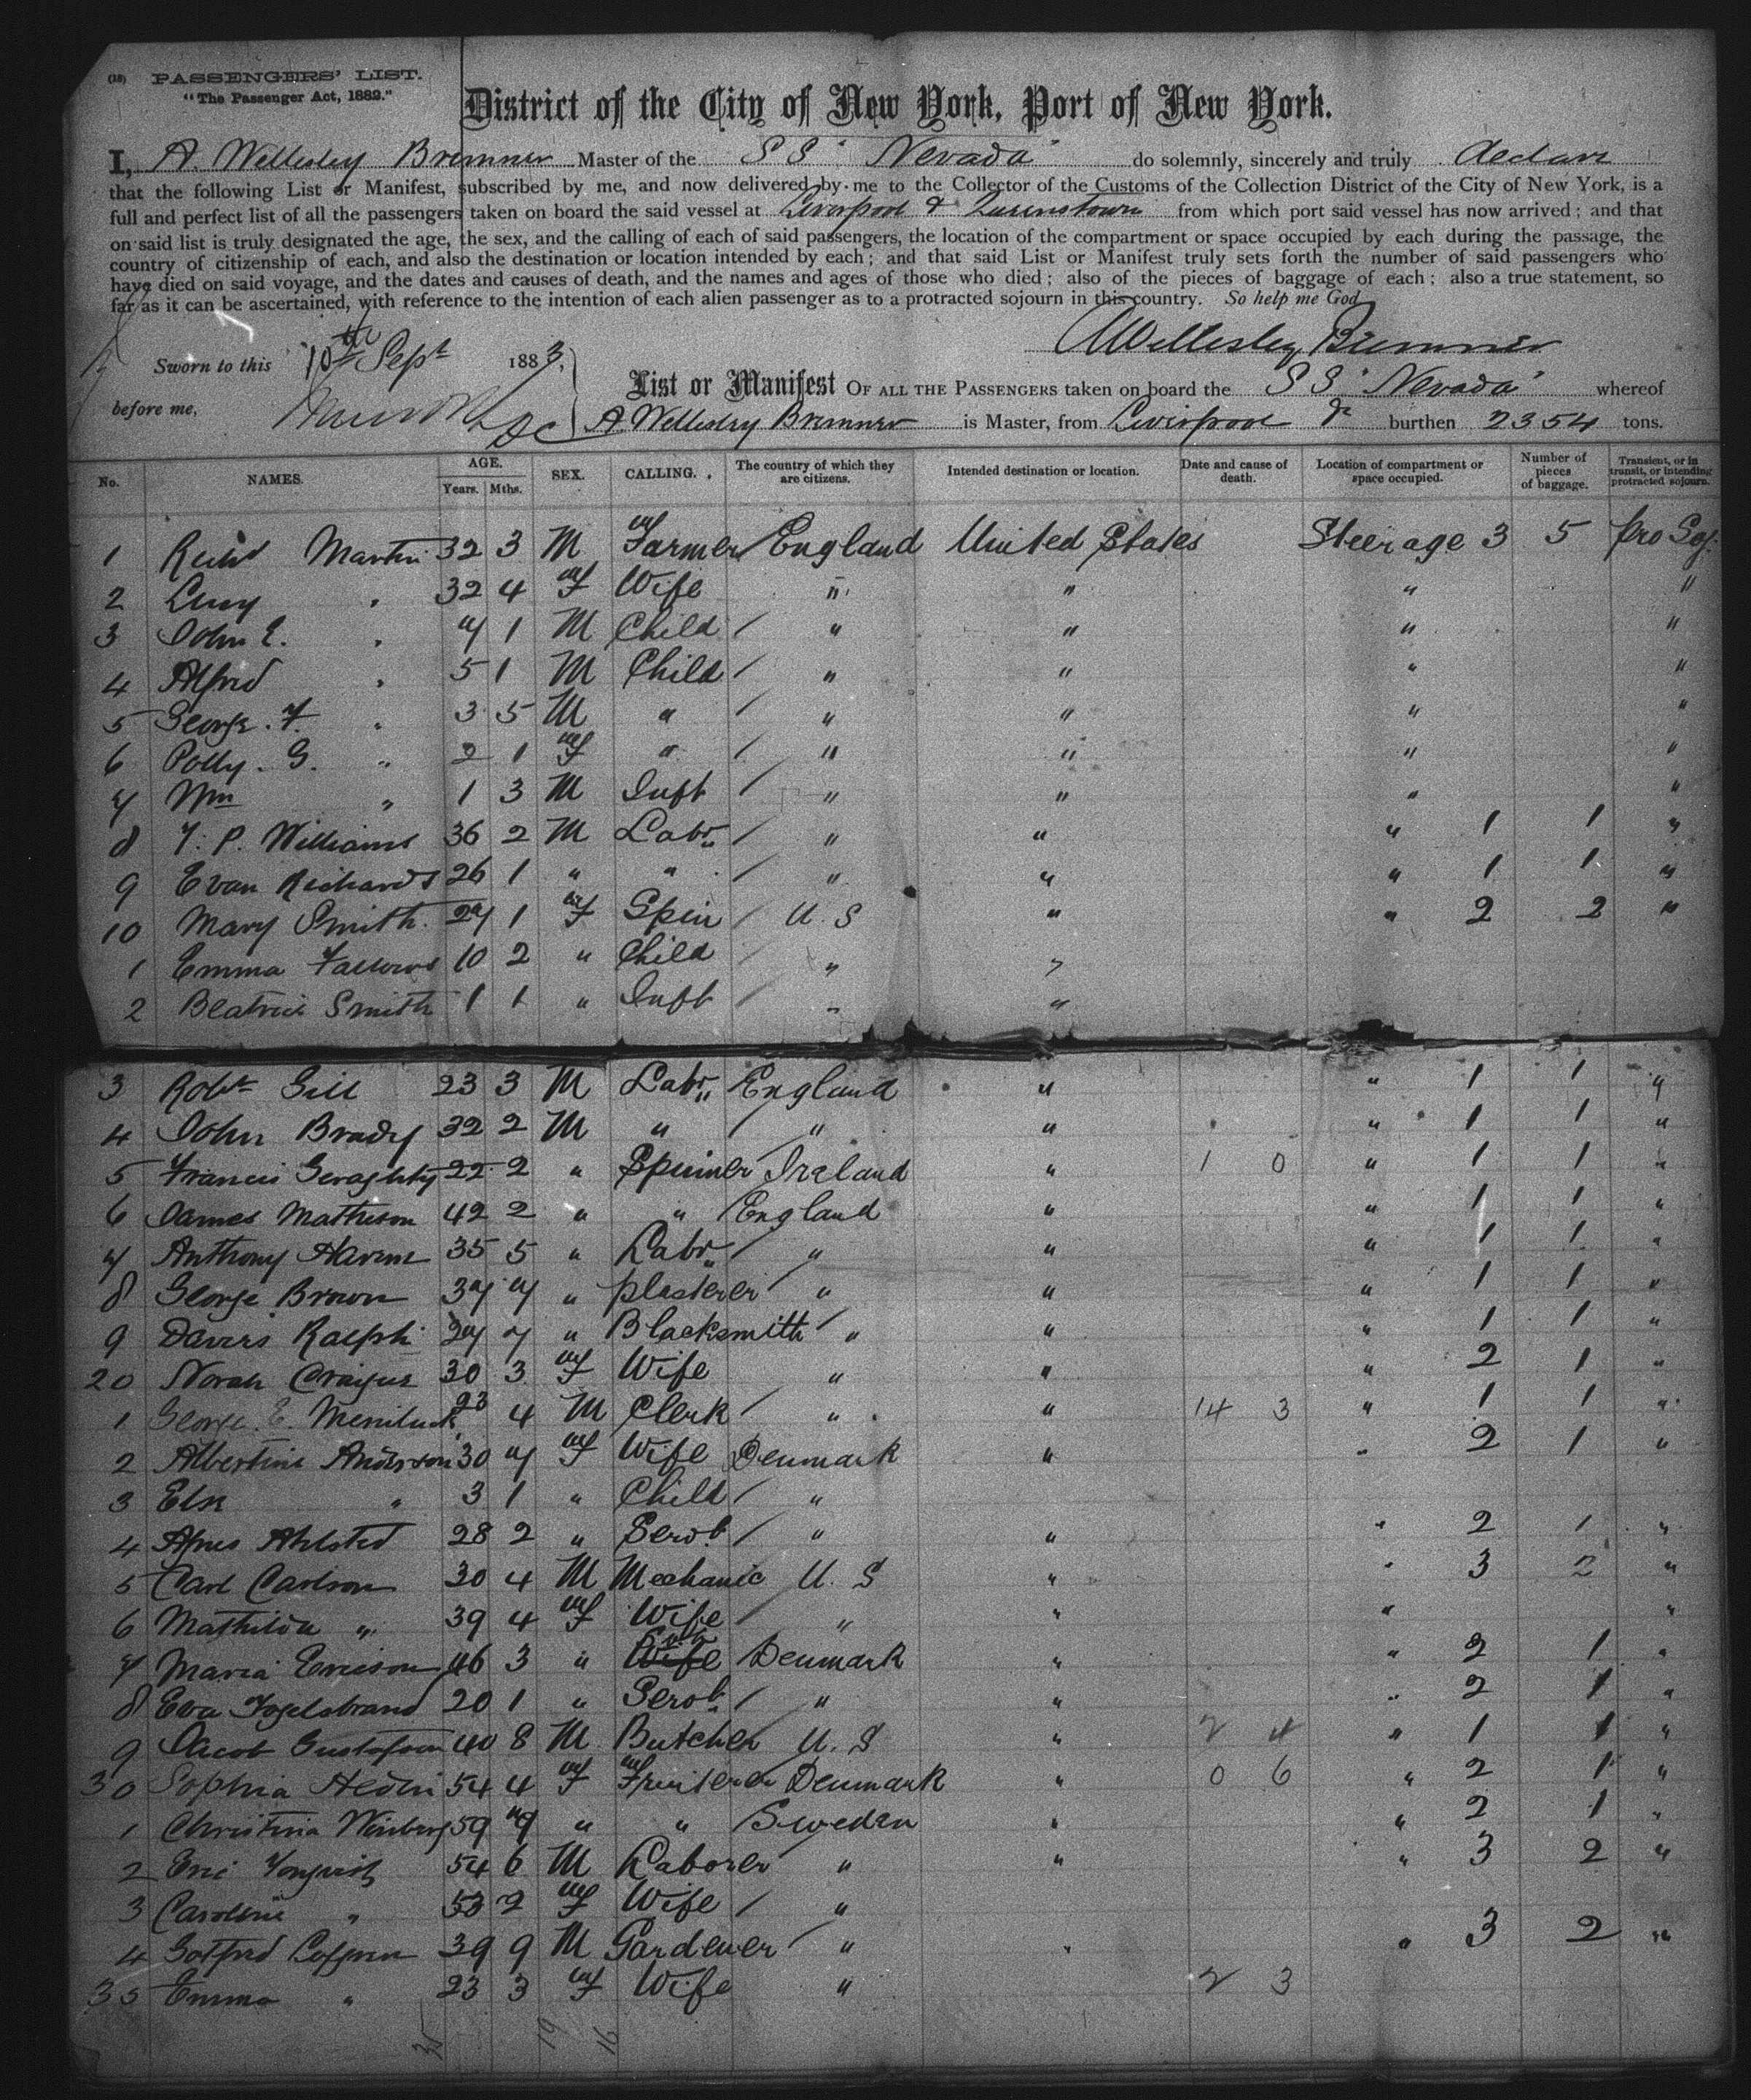 (18) PASSENGERS' LIST.
"The Passenger Act, 1882."
District of the City of New York, Port of New York.
I, A. Wellesley Bremner Master of the S S "Nevada" do solemnly, sincerely and truly declare
that the following List or Manifest, subscribed by me, and now delivered by me to the Collector of the Customs of the Collection District of the City of New York, is a
full and perfect list of all the passengers taken on board the said vessel at Liverpool & Queenstown from which port said vessel has now arrived; and that
on said list is truly designated the age, the sex, and the calling of each of said passengers, the location of the compartment or space occupied by each during the passage, the
country of citizenship of each, and also the destination or location intended by each; and that said List or Manifest truly sets forth the number of said passengers who
have died on said voyage, and the dates and causes of death, and the names and ages of those who died; also of the pieces of baggage of each; also a true statement, so
far as it can be ascertained, with reference to the intention of each alien passenger as to a protracted sojourn in this country. So help me God
AWellesley Bremner
Sworn to this 10th Sept 1883,
before me,
List or Manifest OF ALL THE PASSENGERS taken on board the S S "Nevada" whereof
A. Wellesley Bremner is Master, from Liverpool & burthen 2354 tons.
No. NAMES. AGE. Years. Mths. SEX. CALLING. The country of which they are citizens. Intended destination or location. Date and cause of death. Location of compartment or space occupied. Number of pieces of baggage. Transient, or in transit, or intending protracted sojourn.
1 Richd Martin 32 3 M Farmer England United States Steerage 3 5 Pro Soj.
2 Lucy " 32 4 F Wife " " " "
3 John E. " 7 1 M Child " " " "
4 Alfred " 5 1 M Child " " " "
5 George. F. " 3 5 M " " " " "
6 Polly. G. " 2 1 F " " " " "
7 Wm " 1 3 M Inft " " " "
8 T. P. Williams 36 2 M Labr " " " 1 1 "
9 Evan Richards 26 1 " " " " " 1 1 "
10 Mary Smith 27 1 F Spin U. S " " 2 2 "
1 Emma Fallows 10 2 " Child " "
2 Beatrice Smith 1 1 " Inft " "
3 Robt Gill 23 3 M Labr England " " 1 1 "
4 John Brady 32 2 M " " " " 1 1 "
5 Francis Geraghty 22 2 " Spinner Ireland " 1 0 " 1 1 "
6 James Matheson 42 2 " " England " " 1 1 "
7 Anthony 35 5 " Labr " " " 1 1 "
8 George Brown 37 7 " plasterer " " " 1 1 "
9 Davers Ralph 27 7 " Blacksmith " " " 1 1 "
20 Norah 30 3 F Wife " " " 2 1 "
1 George. E. 23 4 M Clerk " " 14 3 " 1 1 "
2 Albertina Anderson 30 7 F Wife Denmark " " 2 1 "
3 Else " 3 1 " Child "
4 Ahlsted 28 2 " Servt " " " 2 1 "
5 Carl Carlson 30 4 M Mechanic U. S " " 3 2 "
6 Mathilda " 39 4 F Wife " " " "
7 Maria Ericson 46 3 " Denmark " " 2 1 "
8 Eva Fogelstrand 20 1 " Servt " " " 2 1 "
9 Jacob Gustafson 40 8 M Butcher U. S " 2 4 " 1 1 "
30 Sophia Hedin 54 4 F Fruiterer Denmark " 0 6 " 2 1 "
1 Christina Winberg 59 9 " " Sweden " " 2 1 "
2 Eric 54 6 M Laborer " " " 3 2 "
3 Caroline " 53 2 F Wife "
4 Gotfred 39 9 M Gardener " " " 3 2 "
35 Emma " 23 3 F Wife " 2 3
35 19 16